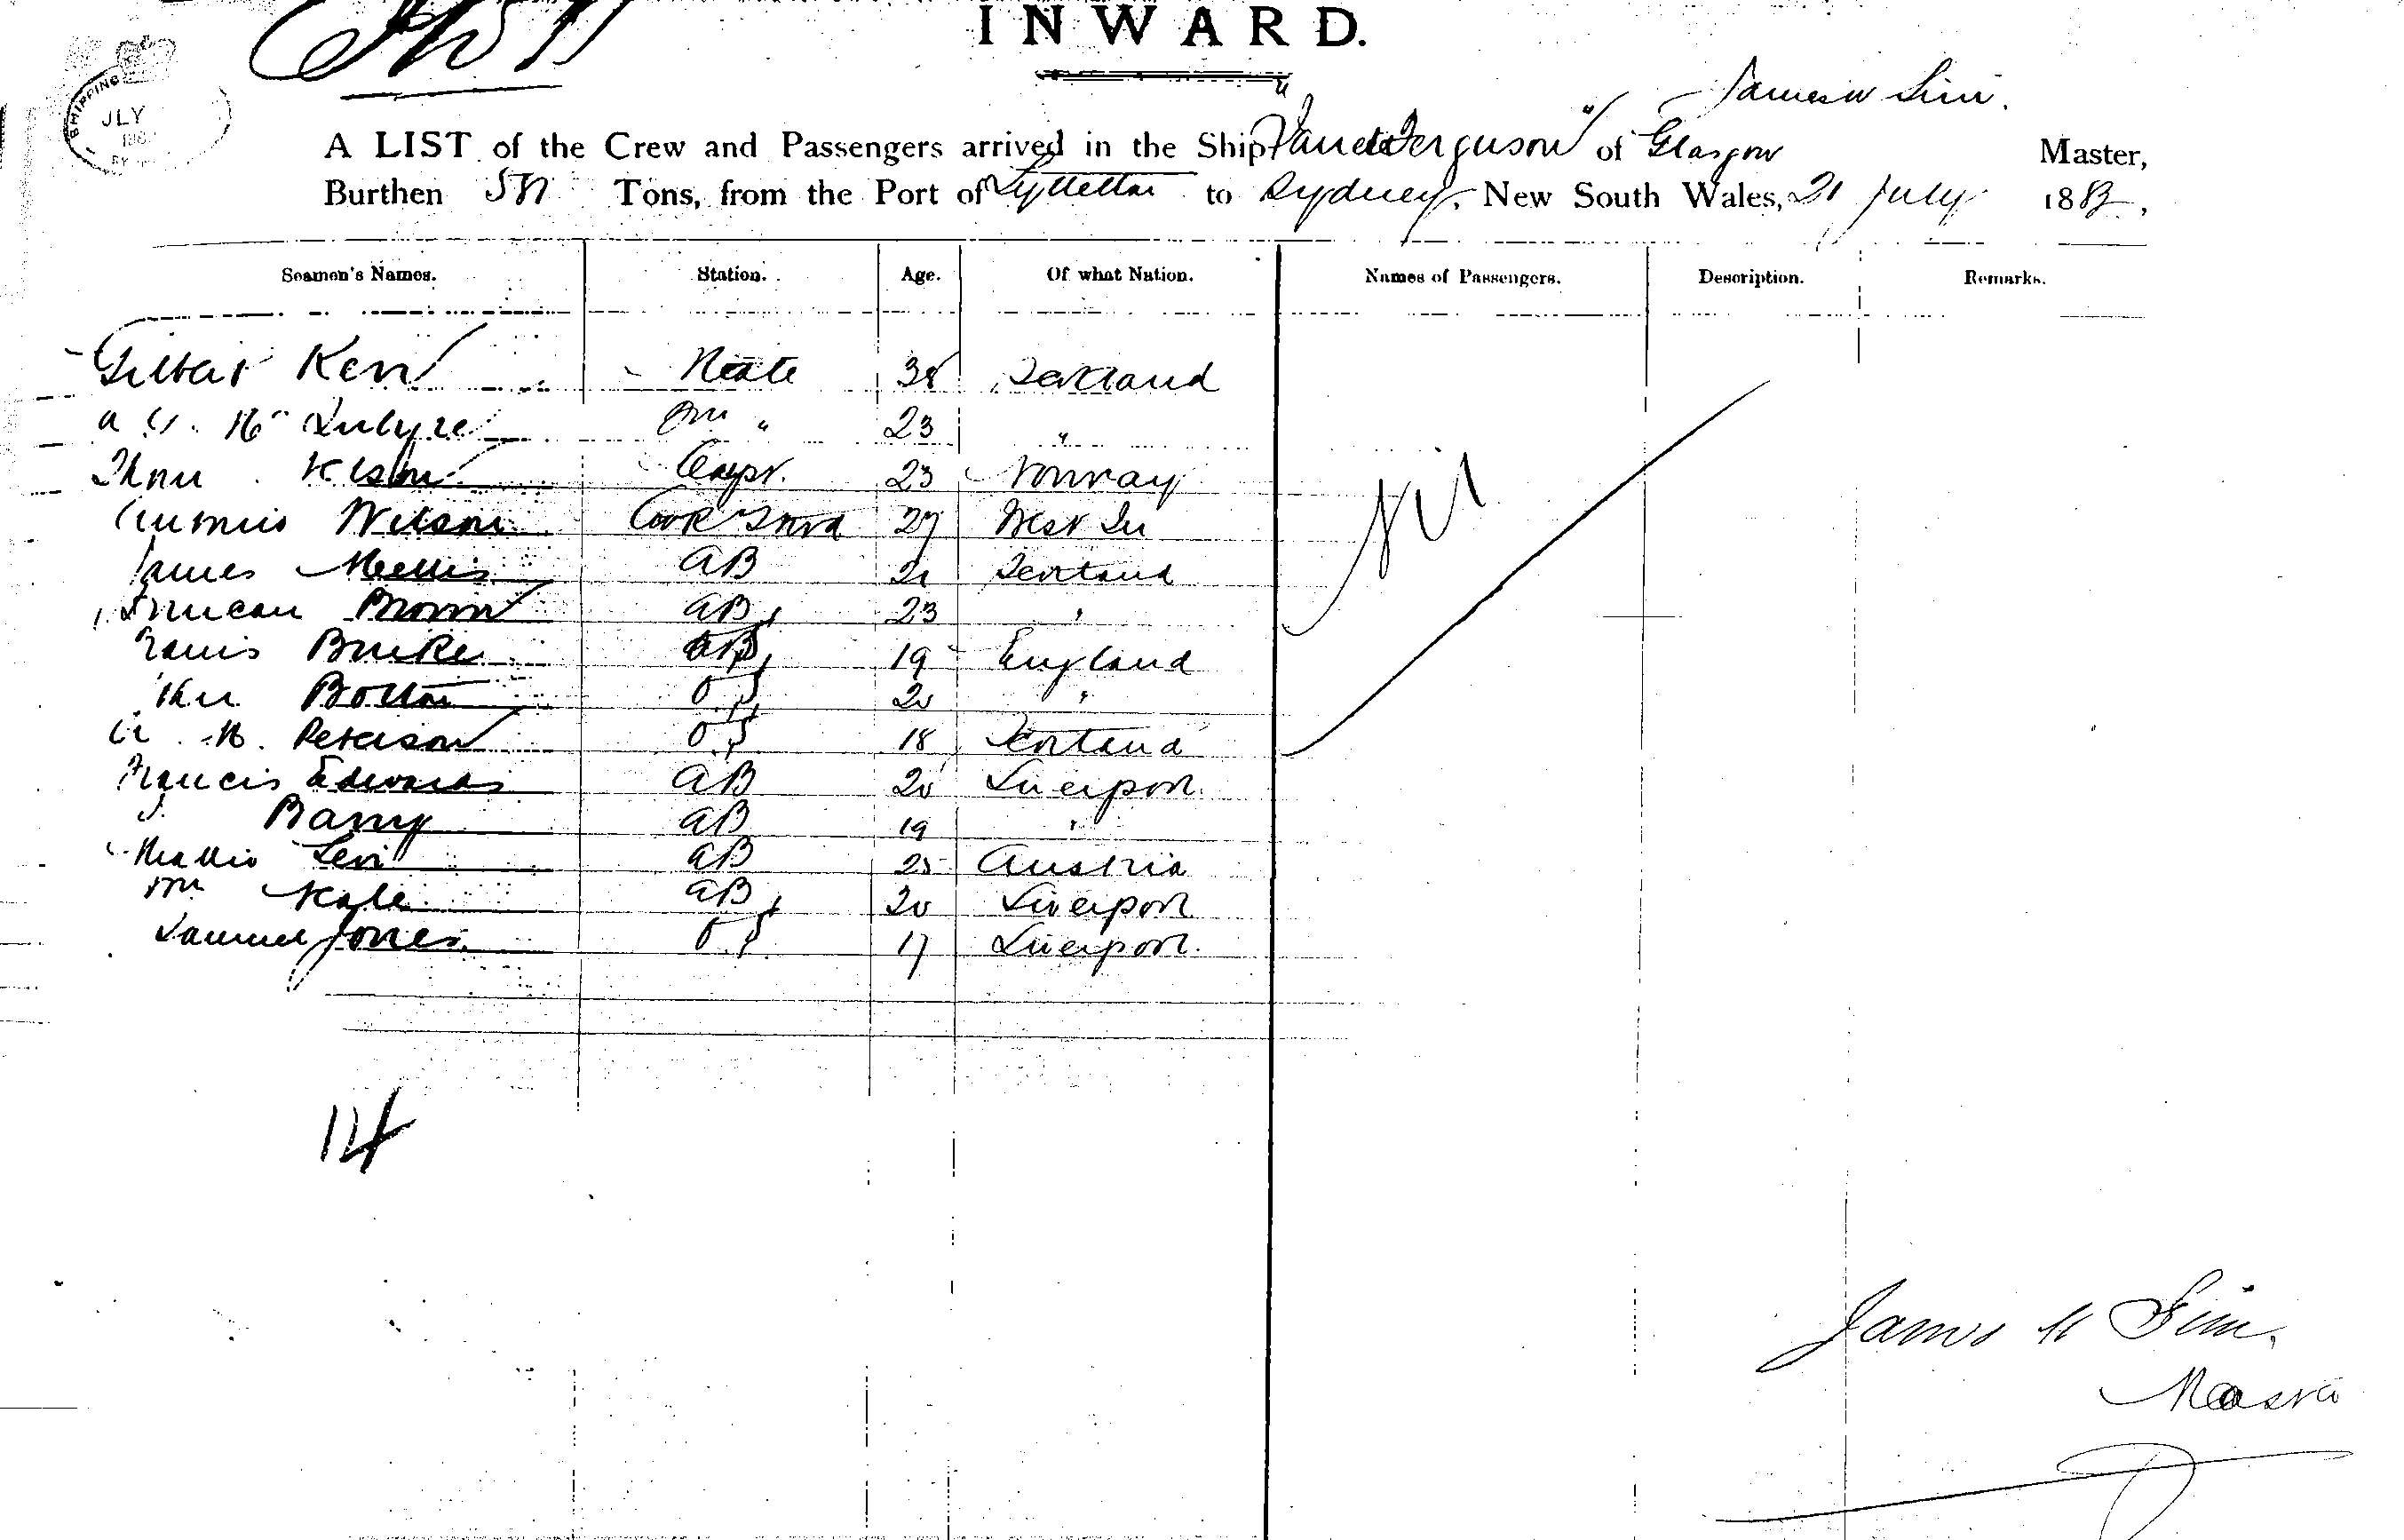 INWARD.
SHIPPING
JLY
James W Sim.
A LIST of the Crew and Passengers arrived in the Ship "Janet Ferguson" of Glasgow Master,
Burthen Tons, from the Port of Lyttelton to Sydney, New South Wales, 21 July 188
Seamen's Names. Station. Age. Of what Nation. Names of Passengers. Description. Remarks.
Gilbert Kerr Mate 38 Scotland Nil
23 "
Carpr. 23 Norway
Wilson Cook Stwd 27 West In
James AB 21 Scotland
Duncan Brown AB 23 "
Burke AB 19 England
Bolton O.S 20 "
Peterson O.S 18 Scotland
Francis Edwards AB 20 Liverpool
Barry AB 19 "
Levi AB 25 Austria
Wm AB 20 Liverpool
Samuel Jones O.S 17 Liverpool.
14
James W Sim.
Master